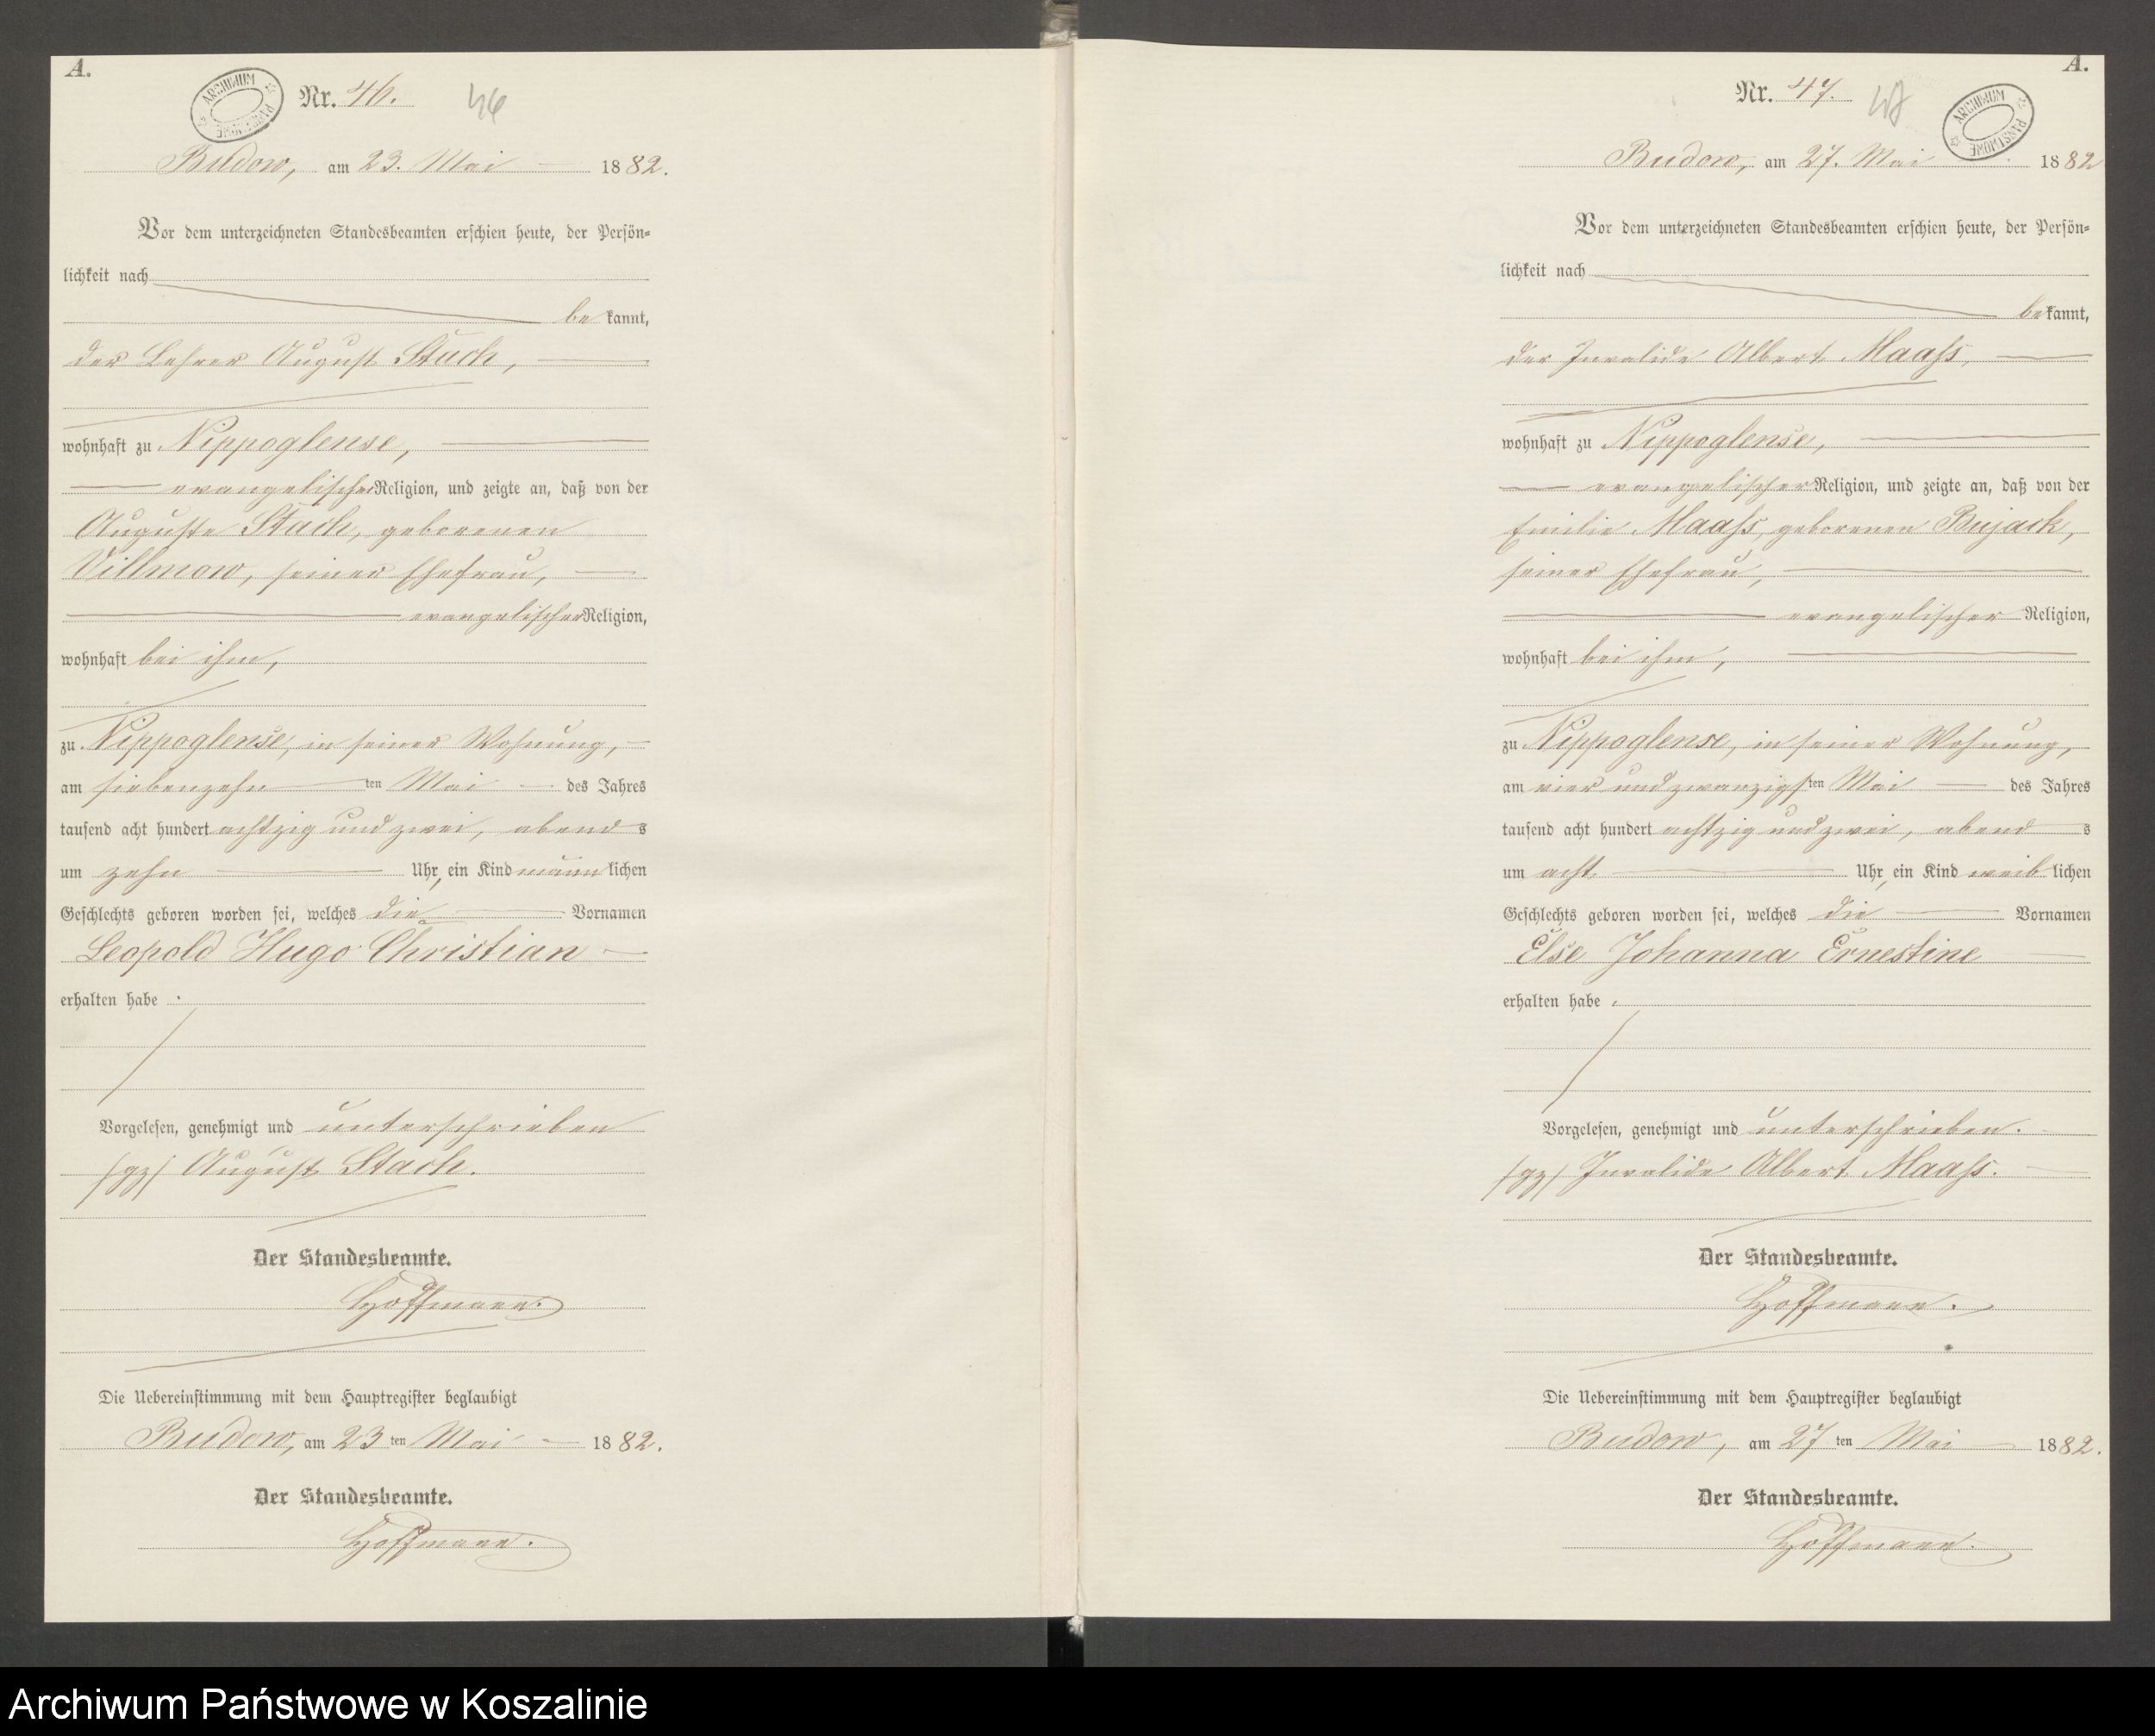 A.
ARCHIWUM PAŃSTWOWE
Nr. 46. 46
Budow, am 23. Mai 1882.
Vor dem unterzeichneten Standesbeamten erschien heute, der Persön-
lichkeit nach
bekannt,
der Lehrer August Stach,
wohnhaft zu Nippoglense,
evangelischer Religion, und zeigte an, daß von der
Auguste Stach, geborenen
Villmow, seiner Ehefrau,
evangelischer Religion,
wohnhaft bei ihm,
zu Nippoglense, in seiner Wohnung,
am siebenzehnten Mai des Jahres
tausend acht hundert achtzig und zwei, abends
um zehn Uhr, ein Kind männlichen
Geschlechts geboren worden sei, welches die Vornamen
Leopold Hugo Christian
erhalten habe.
Vorgelesen, genehmigt und unterschrieben
/gz/ August Stach.
Der Standesbeamte.
Hoffmann.
Die Uebereinstimmung mit dem Hauptregister beglaubigt
Budow, am 23ten Mai 1882.
Der Standesbeamte.
Hoffmann.
A.
Nr. 47. 47
ARCHIWUM PAŃSTWOWE
Budow, am 27. Mai 1882
Vor dem unterzeichneten Standesbeamten erschien heute, der Persön-
lichkeit nach
bekannt,
der Invalide Albert Maaß,
wohnhaft zu Nippoglense,
evangelischer Religion, und zeigte an, daß von der
Emilie Maaß, geborenen Bujack,
seiner Ehefrau,
evangelischer Religion,
wohnhaft bei ihm,
zu Nippoglense, in seiner Wohnung,
am vier und zwanzigsten Mai des Jahres
tausend acht hundert achtzig und zwei, abends
um acht Uhr, ein Kind weiblichen
Geschlechts geboren worden sei, welches die Vornamen
Else Johanna Ernestine
erhalten habe.
Vorgelesen, genehmigt und unterschrieben.
/gz/ Invalide Albert Maaß.
Der Standesbeamte.
Hoffmann.
Die Uebereinstimmung mit dem Hauptregister beglaubigt
Budow, am 27ten Mai 1882.
Der Standesbeamte.
Hoffmann.
Archiwum Państwowe w Koszalinie